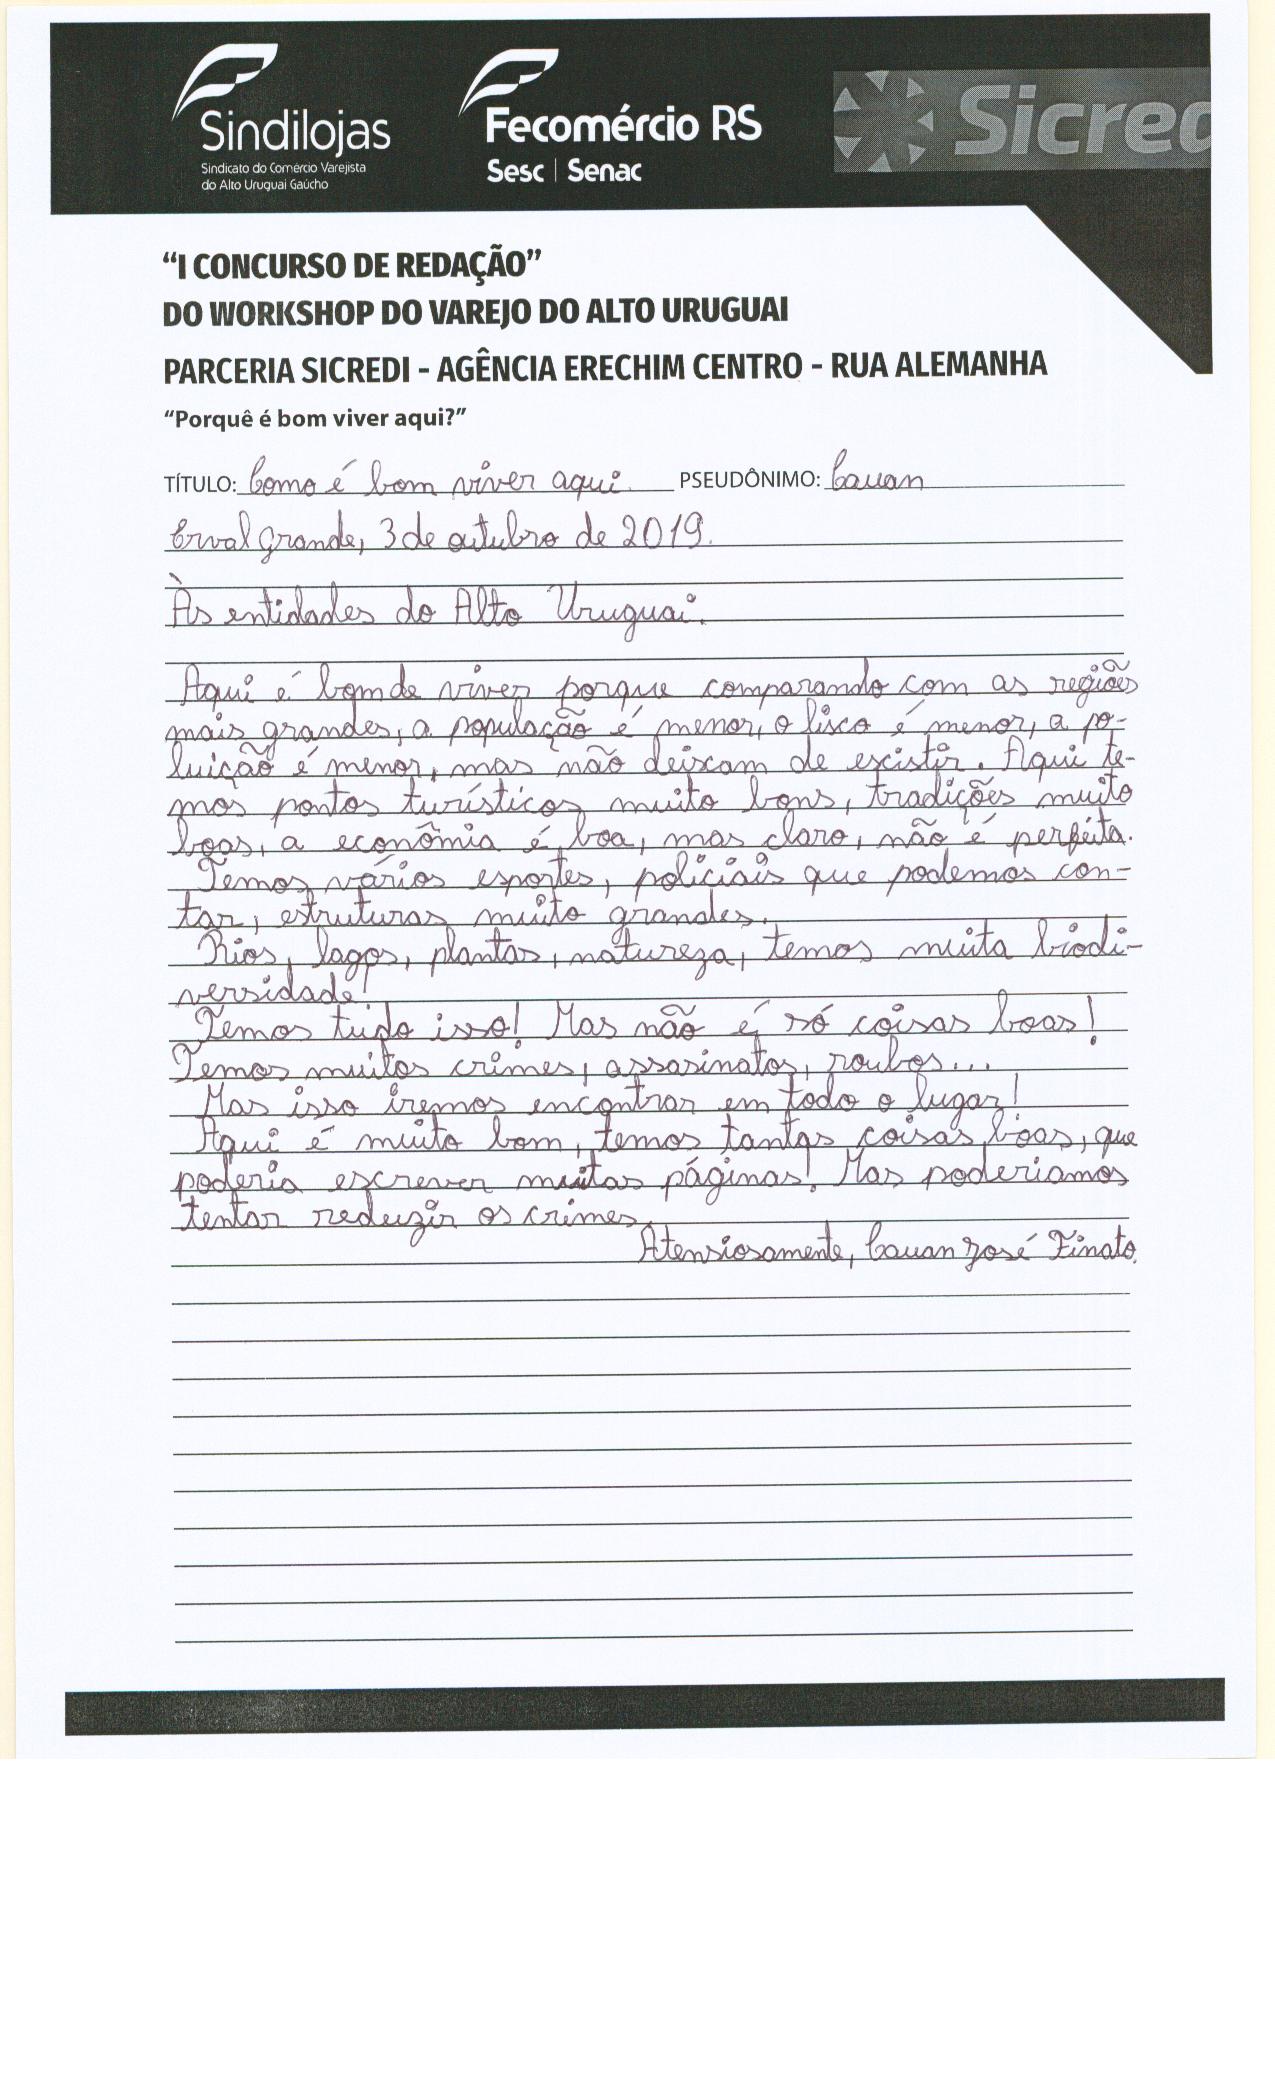 Sindilojas
Sindicato do Comércio Varejista
do Alto Uruguai Gaúcho
Fecomércio RS
Sesc | Senac
Sicred
“I CONCURSO DE REDAÇÃO”
DO WORKSHOP DO VAREJO DO ALTO URUGUAI
PARCERIA SICREDI - AGÊNCIA ERECHIM CENTRO - RUA ALEMANHA
“Porquê é bom viver aqui?”
TÍTULO: Como é bom viver aqui. PSEUDÔNIMO: Cauan
Erval grande, 3 de outubro de 2019.
Às entidades do Alto Uruguai.
Aqui é bom de viver porque comparando com as regiões
mais grandes, a população é menor, o lisco é menor, a po-
luição é menor, mas não deixam de excistir. Aqui te-
mos pontos turísticos muito bons, tradições muito
boas, a econômia é boa, mas claro, não é perfeita.
Temos vários esportes, policiais que podemos con-
tar, estruturas muito grandes.
Rios, lagos, plantas, natureza, temos muita biodi-
versidade!
Temos tudo isso! Mas não é só coisas boas!
Temos muitos crimes, assasinatos, roubos...
Mas isso iremos encontrar em todo o lugar!
Aqui é muito bom, temos tantas coisas boas, que
poderia escrever muitas páginas! Mas poderiamos
tentar reduzir os crimes.
Atensiosamente, Cauan José Finato.